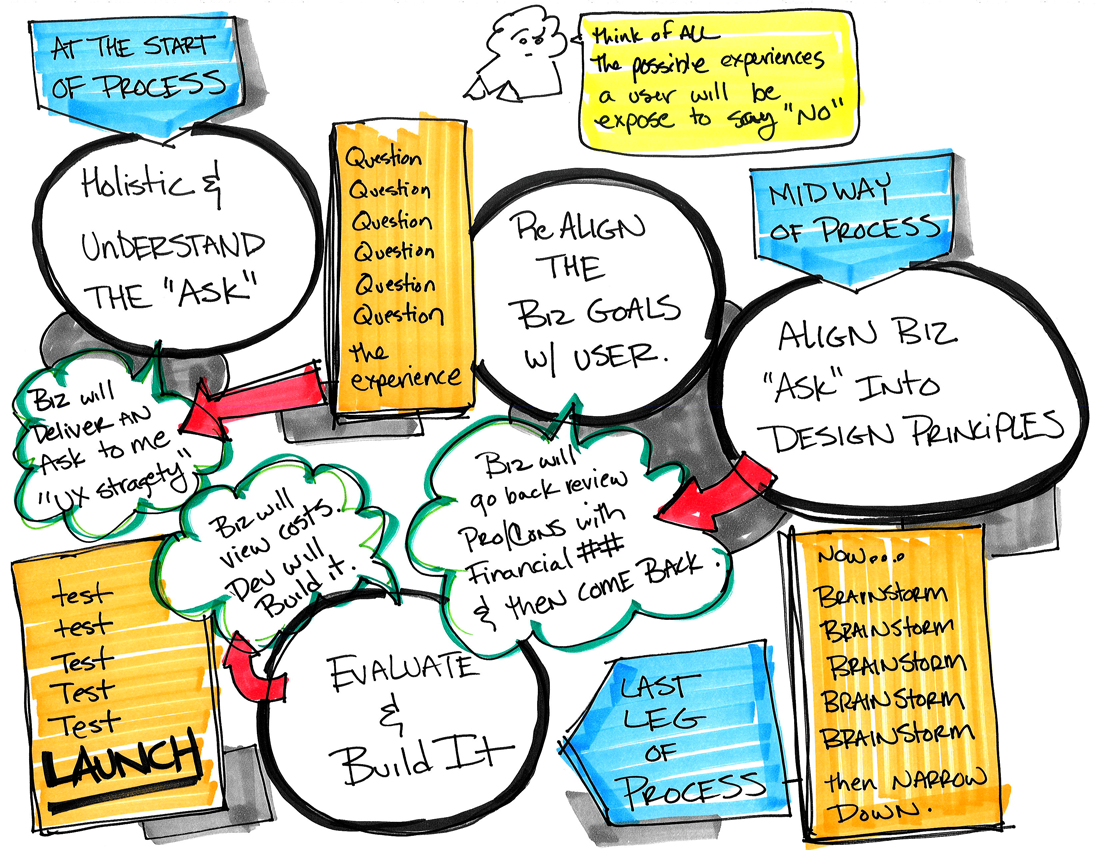 AT THE START
OF PROCESS
Holistic &
UnDERSTAND
THE "ASK"
Question
Question
Question
Question
Question
Question
the
experience
think of ALL
the possible experiences
a user will be
expose to say "No"
Re ALIGN
THE
BIZ GOALS
W/ USER.
MIDWAY
OF PROCESS
ALIGN BIZ
"ASK" INTO
DESIGN PRINCIPLES
Biz will
Deliver AN
Ask to me
"UX stragety"
Biz will
go back review
Pro/Cons with
Financial ##
& then come BACK.
NOW...
BRAINSTORM
BRAINSTORM
BRAINSTORM
BRAINSTORM
BRAINSTORM
then NARROW
DOWN.
LAST
LEG
OF
PROCESS
EVALUATE
&
Build It
Biz will
view costs.
Dev will
Build it.
test
test
Test
Test
Test
LAUNCH